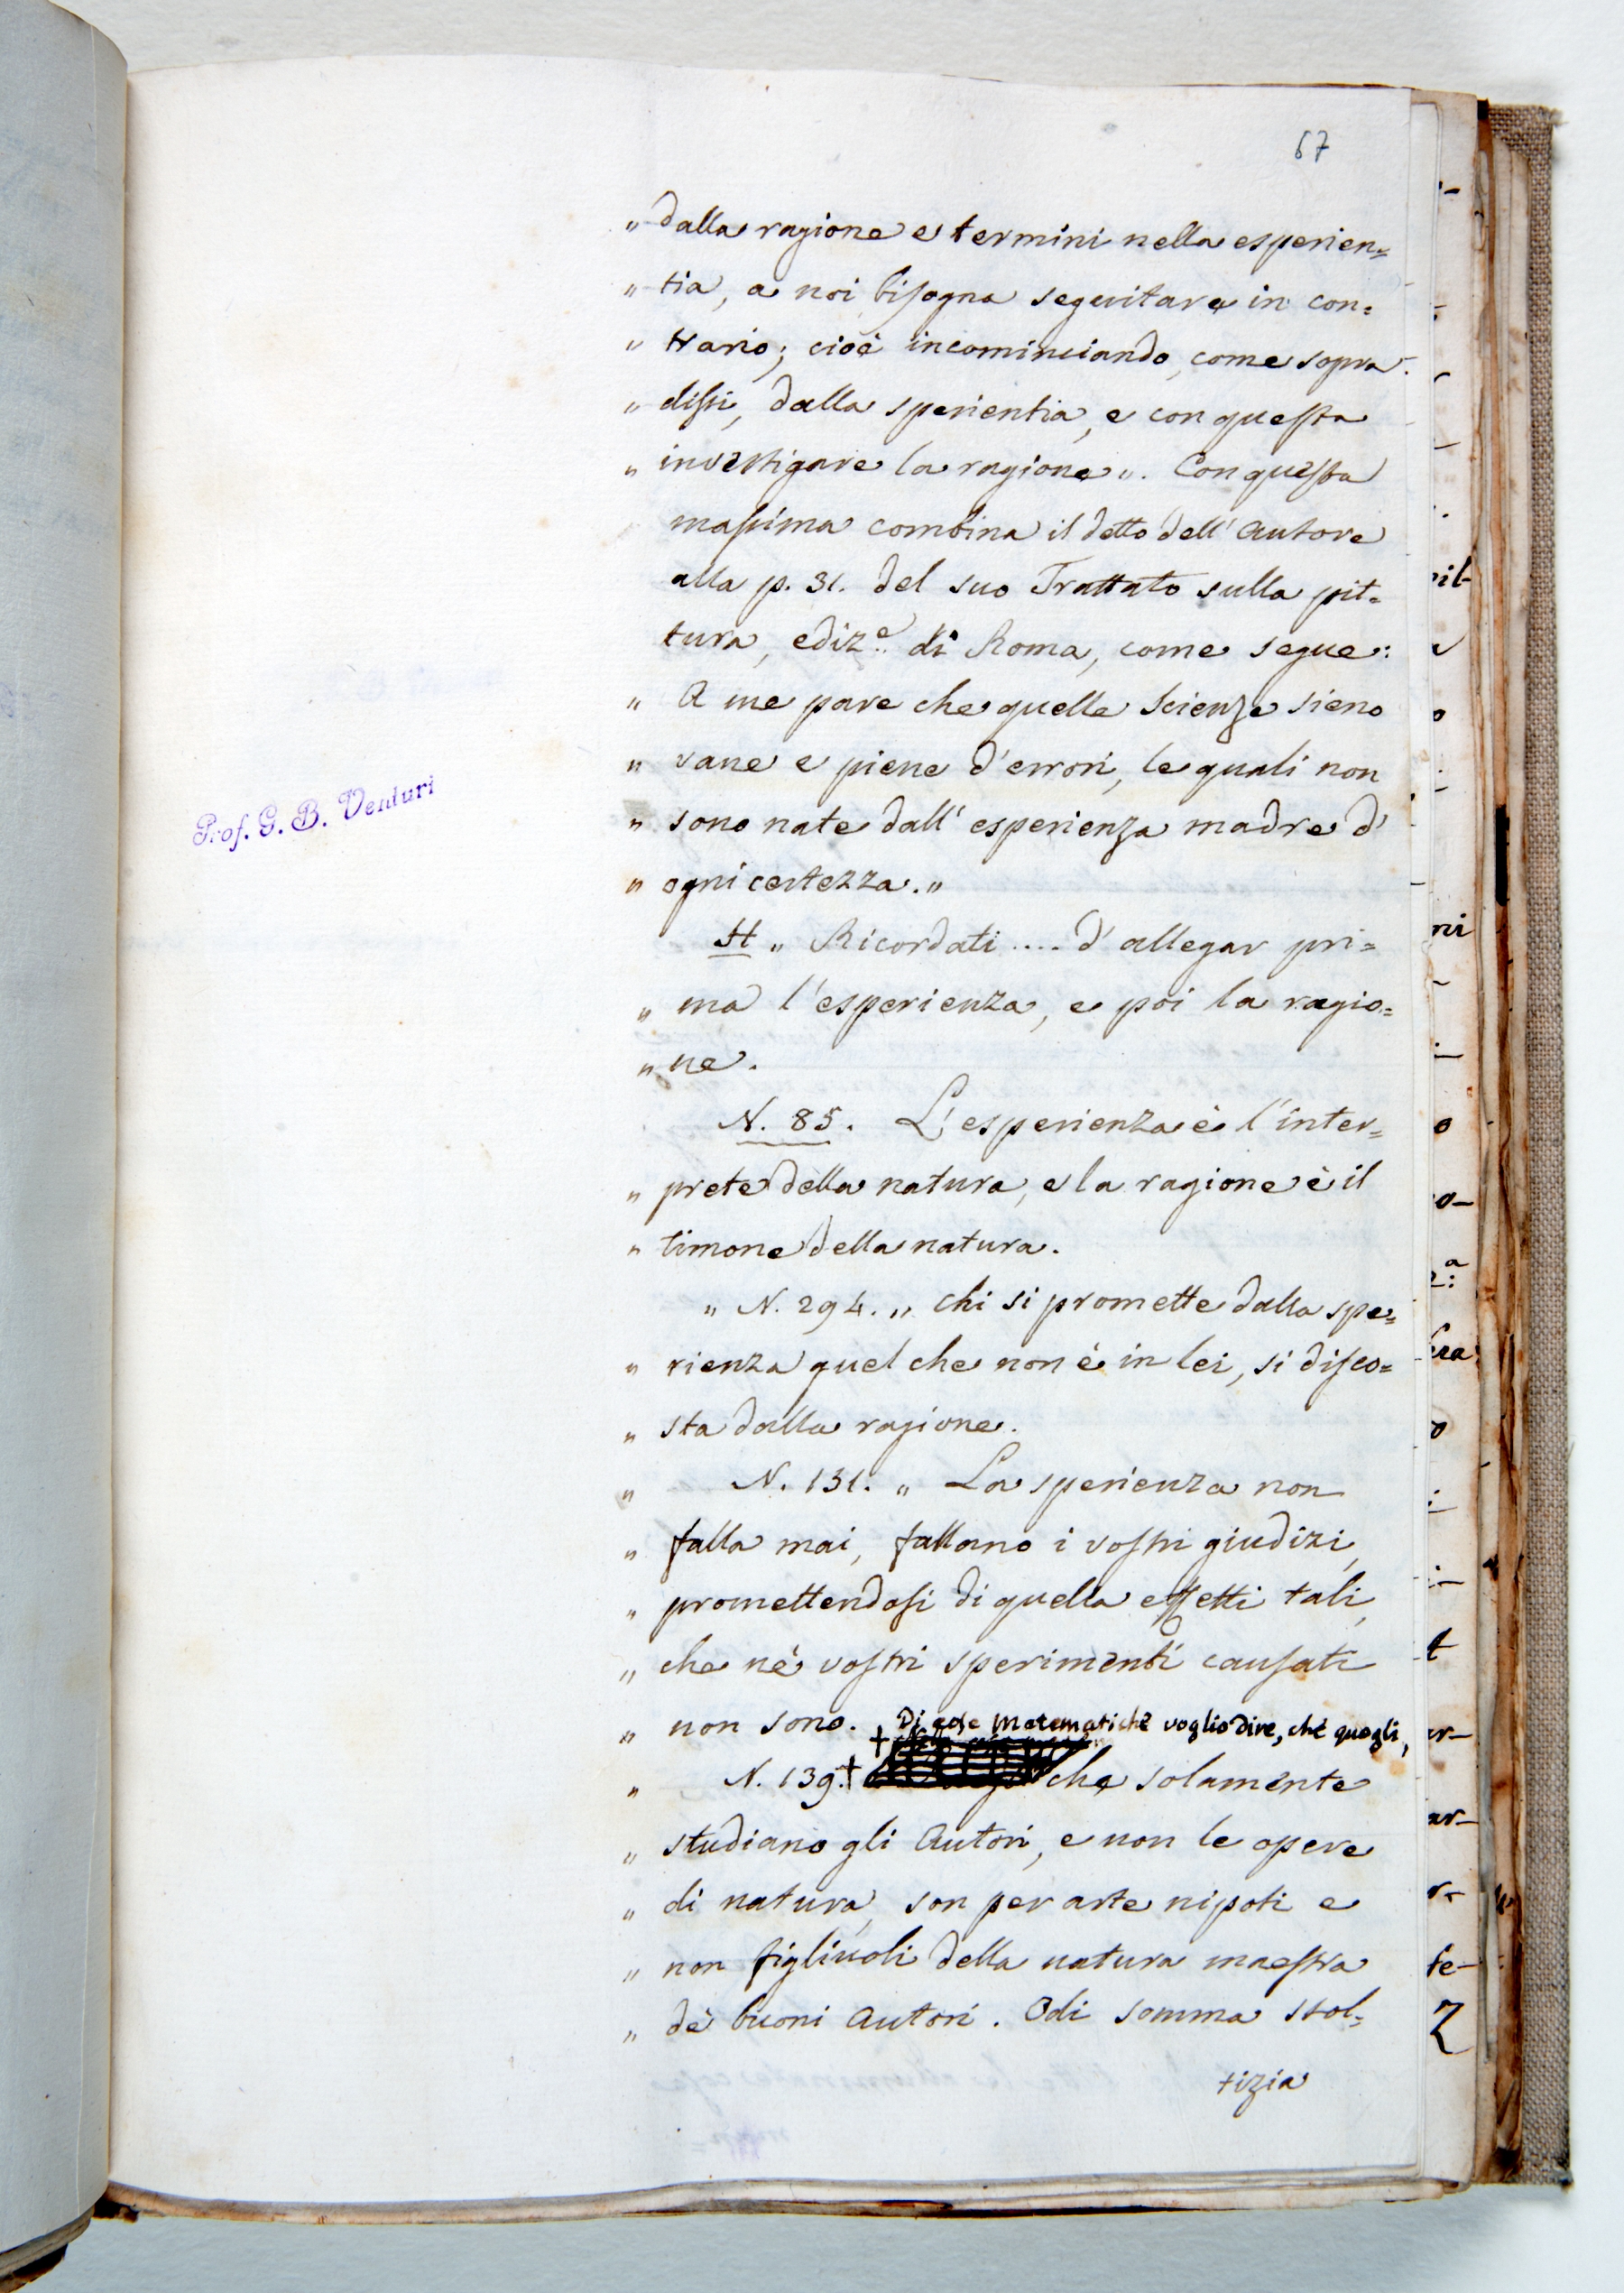 67
„ dalla ragione e termini nella esperien=
„ tia, a noi bisogna seguitare in con=
„ trario; cioè incominciando, come sopra
„ dissi, dalla sperientia, e con questa
„ investigare la ragione „. Con questa
massima combina il detto dell'Autore
alla p. 31. del suo Trattato sulla pit=
tura, ediz.e di Roma, come segue:
„ A me pare che quelle scienze sieno
„ vane e piene d'errori, le quali non
„ sono nate dall'esperienza madre d'
„ ogni certezza. „
H „ Ricordati .... d'allegar pri=
„ ma l'esperienza, e poi la ragio=
„ ne.
N. 85. L'esperienza è l'inter=
„ prete della natura, e la ragione è il
„ timone della natura.
„ N. 294. „ chi si promette dalla spe=
„ rienza quel che non è in lei, si disco=
„ sta dalla ragione.
„ N. 131. „ La sperienza non
„ falla mai, fallano i vostri giudizi,
„ promettendosi di quella effetti tali,
„ che ne' vostri sperimenti causati
„ non sono.
+ Di cose matematiche voglio dire, che quegli,
„ N. 139. + che solamente
„ studiano gli Autori, e non le opere
„ di natura, son per arte nipoti e
„ non figliuoli della natura maestra
„ de' buoni Autori. Odi somma stol=
tizia
Prof. G. B. Venturi